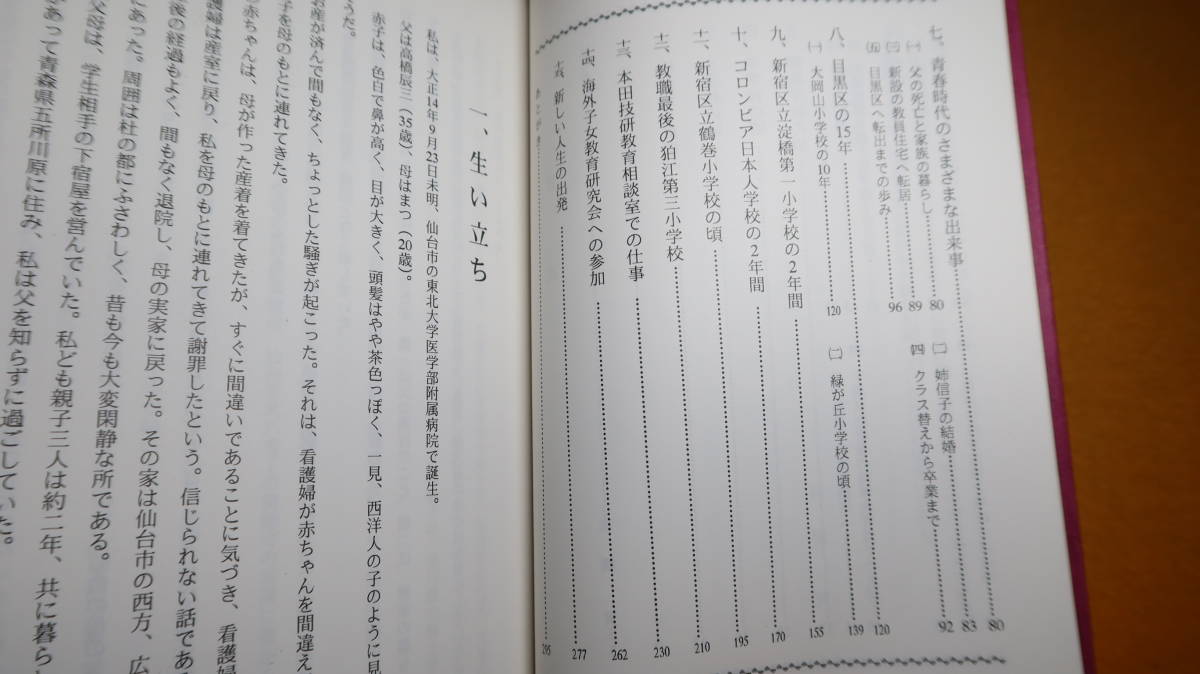 七、青春時代のさまざまな出来事 80
㈠ 父の死亡と家族の暮らし 80
㈡ 姉信子の結婚 83
㈢ 新設の教員住宅へ転居 89
㈣ クラス替えから卒業まで 92
㈤ 目黒区へ転出までの歩み 96
八、目黒区の15年 120
㈠ 大岡山小学校の10年 120
㈡ 緑が丘小学校の頃 139
九、新宿区立淀橋第一小学校の2年間 155
十、コロンビア日本人学校の2年間 170
十一、新宿区立鶴巻小学校の頃 195
十二、教職最後の狛江第三小学校 210
十三、本田技研教育相談室での仕事 230
十四、海外子女教育研究会への参加 262
十五、新しい人生の出発 277
あとがき 295
一、生い立ち
私は、大正14年9月23日未明、仙台市の東北大学医学部附属病院で誕生。
父は高橋辰三（35歳）、母はまつ（20歳）。
赤子は、色白で鼻が高く、目が大きく、頭髪はやや茶色っぽく、一見、西洋人の子のように見
うだ。
お産が済んで間もなく、ちょっとした騒ぎが起こった。それは、看護婦が赤ちゃんを間違え
子を母のもとに連れてきた。
赤ちゃんは、母が作った産着を着てきたが、すぐに間違いであることに気づき、看護婦
護婦は産室に戻り、私を母のもとに連れてきて謝罪したという。信じられない話であ
後の経過もよく、間もなく退院し、母の実家に戻った。その家は仙台市の西方、広
にあった。周囲は杜の都にふさわしく、昔も今も大変閑静な所である。
父母は、学生相手の下宿屋を営んでいた。私ども親子三人は約二年、共に暮ら
あって青森県五所川原に住み、私は父を知らずに過ごしていた。